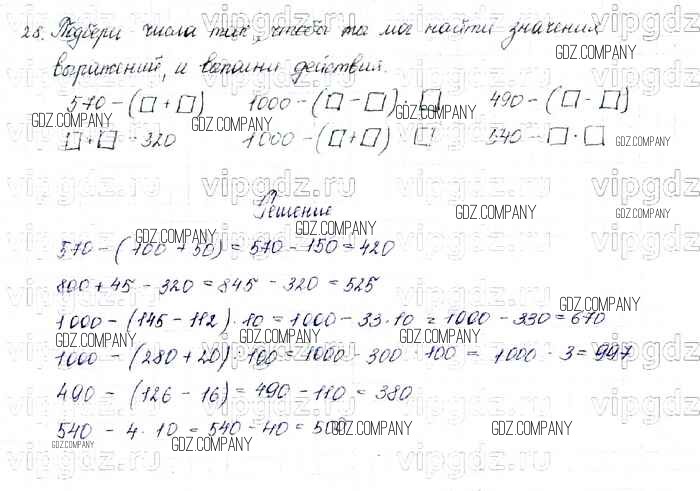 28. Подбери числа так, чтобы ты мог найти значения
выражений, и выполни действия.
570 − (□ + □) 1000 − (□ − □) · □ 490 − (□ − □)
□ + □ − 320 1000 − (□ + □) : □ 540 − □ · □
Решение
570 − (100 + 50) = 570 − 150 = 420
800 + 45 − 320 = 845 − 320 = 525
1000 − (145 − 112) · 10 = 1000 − 33 · 10 = 1000 − 330 = 670
1000 − (280 + 20) : 100 = 1000 − 300 : 100 = 1000 − 3 = 997
490 − (126 − 16) = 490 − 110 = 380
540 − 4 · 10 = 540 − 40 = 500